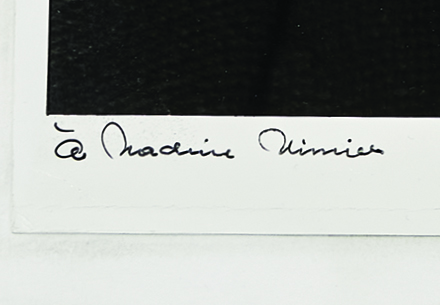 à Nadine Nimier